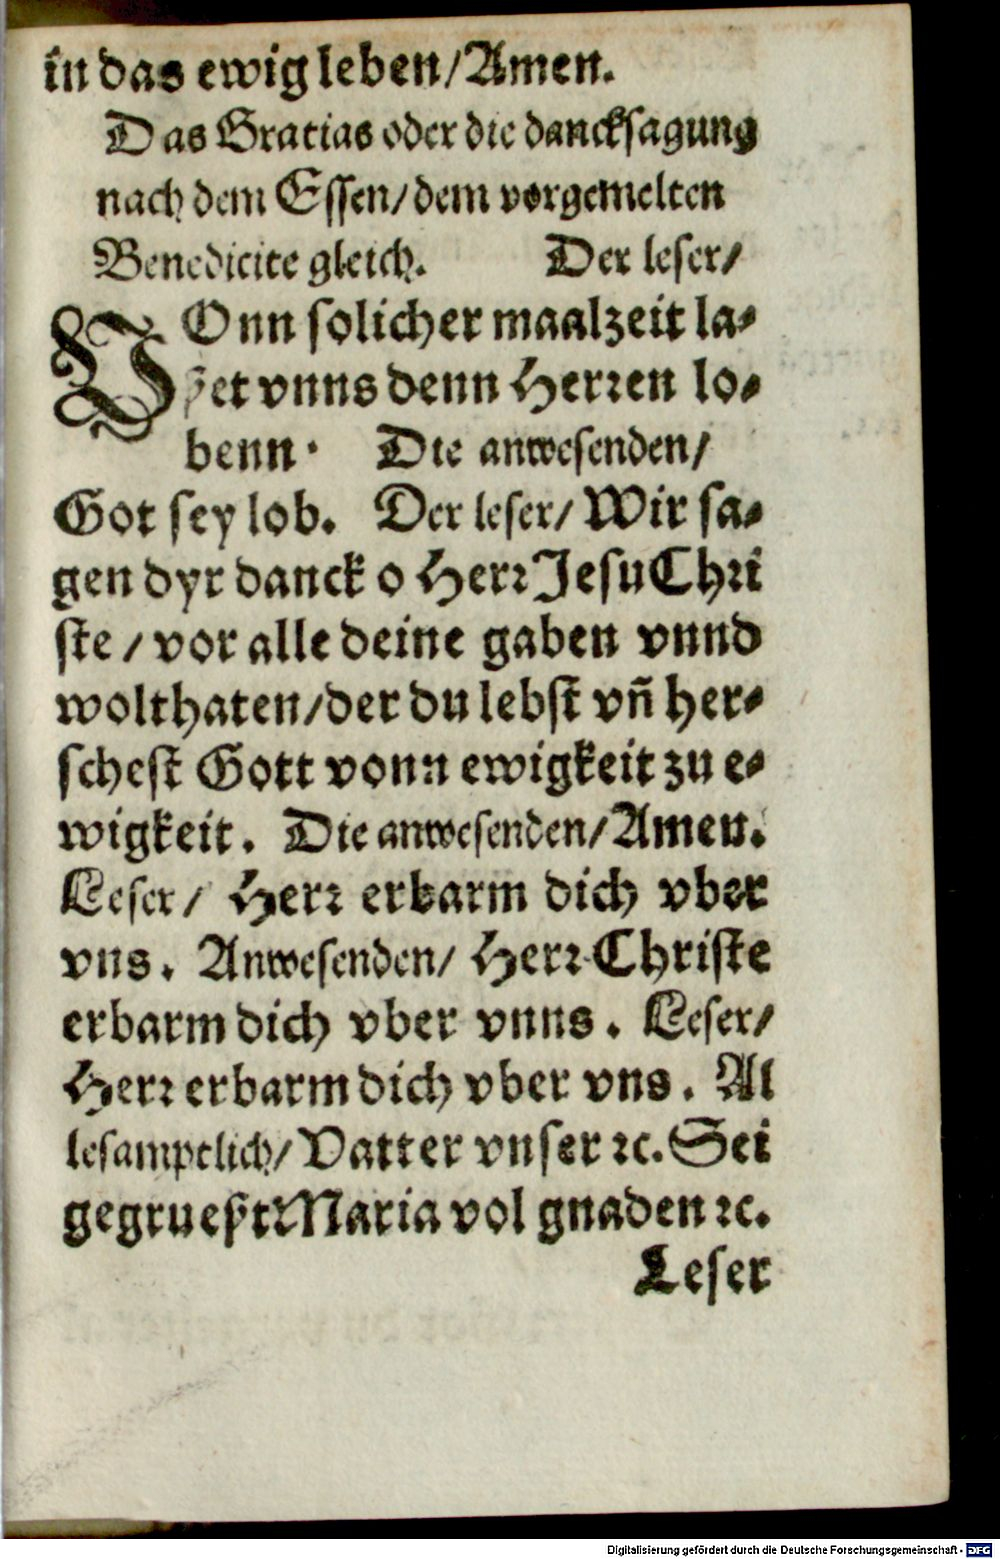 in das ewig leben/Amen.
Das Gratias oder die dancksagung
nach dem Essen/dem vorgemelten
Benedicite gleich. Der leser/
VOnn solicher maalzeit la⸗
ßet vnns denn Herren lo⸗
benn. Die anwesenden/
Got sey lob. Der leser/ Wir sa⸗
gen dyr danck o Herr Jesu Chri
ste/ vor alle deine gaben vnnd
wolthaten/der du lebst vñ her⸗
schest Gott vonn ewigkeit zu e⸗
wigkeit. Die anwesenden/Amen.
Leser/ Herr erbarm dich vber
vns. Anwesenden/ Herr Christe
erbarm dich vber vnns. Leser/
Herr erbarm dich vber vns. Al
lesamptlich/ Vatter vnser ꝛc. Sei
gegrueßt Maria vol gnaden ꝛc.
Leser
Digitalisierung gefördert durch die Deutsche Forschungsgemeinschaft - DFG